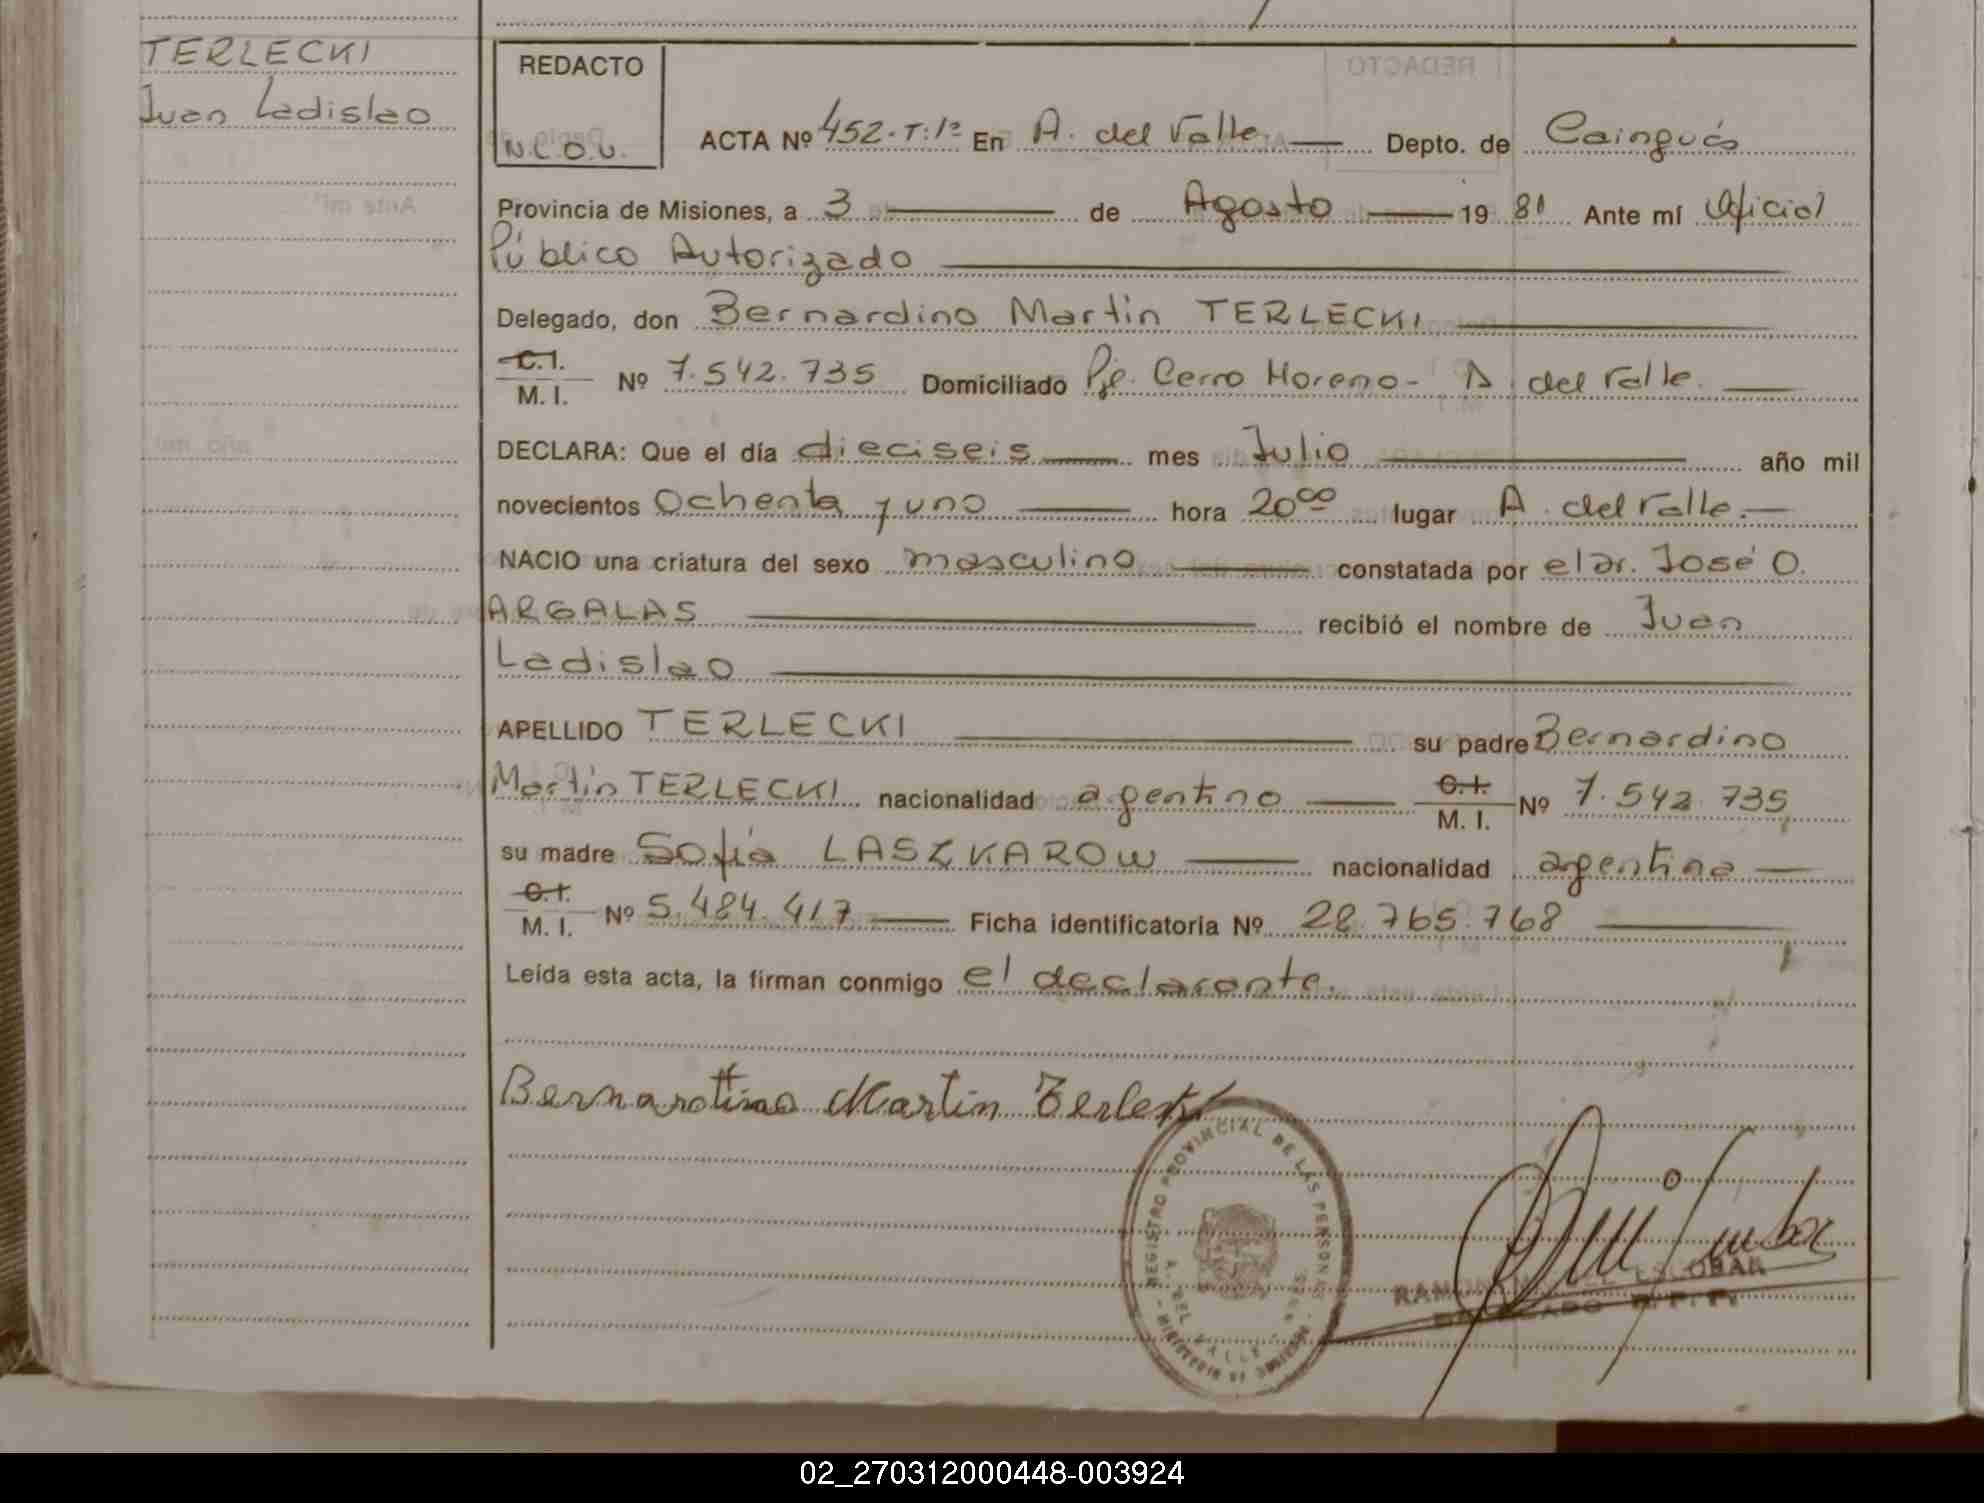 TERLECKI
Juan Ladislao
REDACTO
N.C.O.U.
ACTA Nº 452-T:1º En A. del Valle Depto. de Cainguás
Provincia de Misiones, a 3 de Agosto 19 81 Ante mí Oficial
Público Autorizado
Delegado, don Bernardino Martin TERLECKI
C.I.
M. I. Nº 7.542.735 Domiciliado Pje. Cerro Moreno - A. del Valle.
DECLARA: Que el día dieciseis mes Julio año mil
novecientos Ochenta y uno hora 20°° lugar A. del Valle.
NACIO una criatura del sexo masculino constatada por el Dr. José O.
ARGALAS recibió el nombre de Juan
Ladislao
APELLIDO TERLECKI su padre Bernardino
Martín TERLECKI nacionalidad agentino C.I.
M. I. Nº 7.542.735
su madre Sofía LASZKAROW nacionalidad argentina
C.I.
M. I. Nº 5.484.417 Ficha identificatoria Nº 28.765.768
Leída esta acta, la firman conmigo el declarante.
Bernardino Martin Terlecki
REGISTRO PROVINCIAL DE LAS PERSONAS
A. DEL VALLE
RAMON ESCOBAR
DELEGADO R. P. P.
02_270312000448-003924